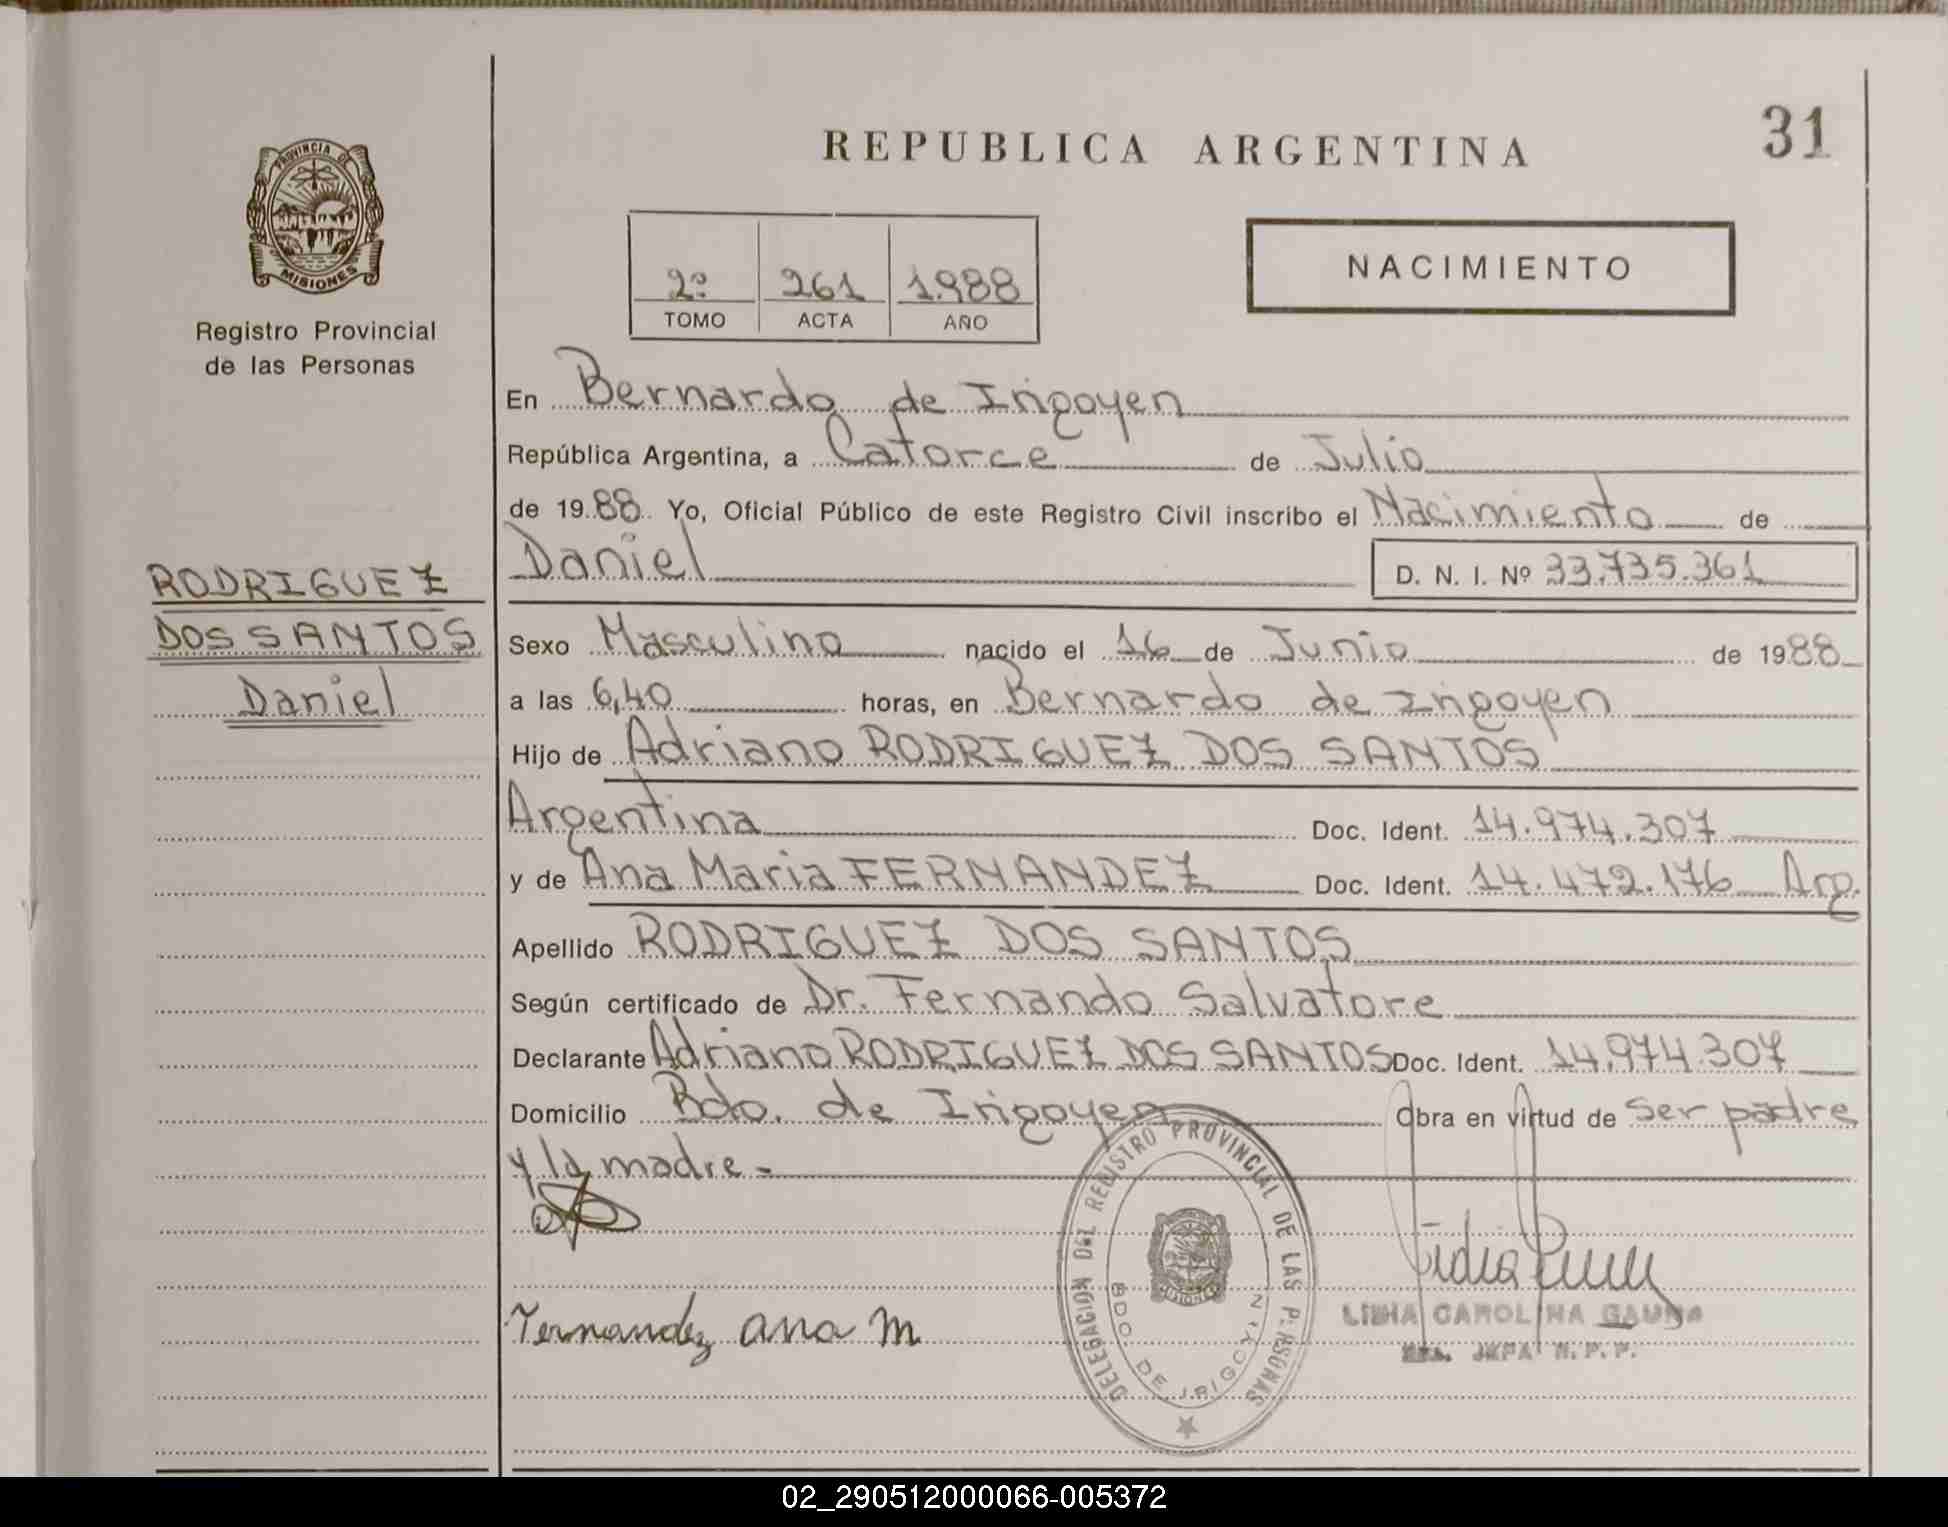 REPUBLICA ARGENTINA
31
PROVINCIA DE
MISIONES
Registro Provincial
de las Personas
2º 261 1.988
TOMO ACTA AÑO
NACIMIENTO
En Bernardo de Irigoyen
República Argentina, a Catorce de Julio
de 1988 Yo, Oficial Público de este Registro Civil inscribo el Nacimiento de
Daniel D. N. I. Nº 33.735.361
RODRIGUEZ
DOS SANTOS
Daniel
Sexo Masculino nacido el 16 de Junio de 1988
a las 6,40 horas, en Bernardo de Irigoyen
Hijo de Adriano RODRIGUEZ DOS SANTOS
Argentina Doc. Ident. 14.974.307
y de Ana Maria FERNANDEZ Doc. Ident. 14.472.176 Arg.
Apellido RODRIGUEZ DOS SANTOS
Según certificado de Dr. Fernando Salvatore
Declarante Adriano RODRIGUEZ DOS SANTOS Doc. Ident. 14.974.307
Domicilio Bdo. de Irigoyen Obra en virtud de ser padre
y la madre.-
Fernandez Ana M
DELEGACION DEL REGISTRO PROVINCIAL DE LAS PERSONAS
BDO. DE IRIGOYEN
MISIONES
CAROLINA GAUNA
JEFA R.P.P.
02_290512000066-005372